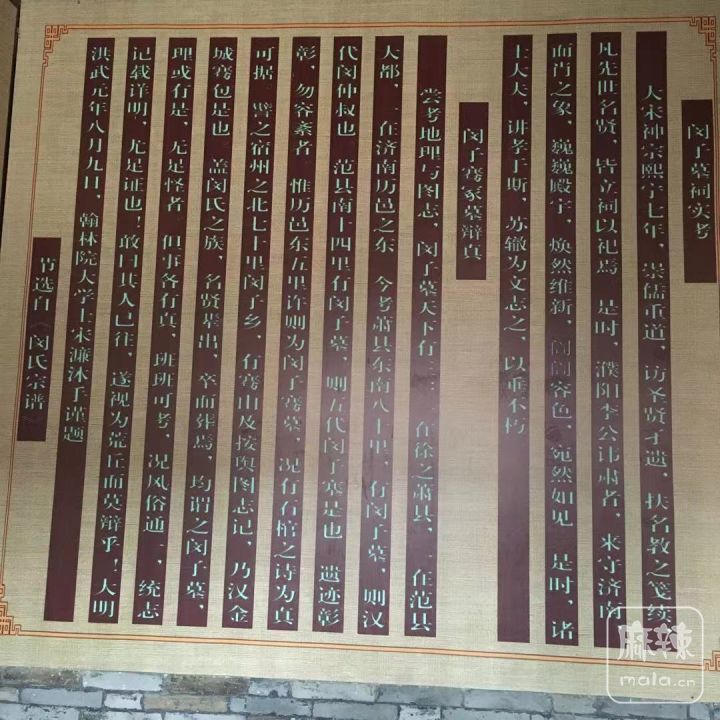 闵子墓祠实考
大宋神宗熙宁七年，崇儒重道，访圣贤才遗，扶名教之笺续
凡先世名贤，皆立祠以祀焉 是时，濮阳李公讳肃者，来守济南
而肖之象，巍巍殿宇，焕然维新，訚訚容色，宛然如见 是时，诸
士大夫，讲孝于斯，苏辙为文志之，以垂不朽
闵子骞冢墓辩真
尝考地理与图志，闵子墓天下有三：一在徐之萧县，一在范县
大都，一在济南历邑之东 今考萧县东南八十里，有闵子墓，则汉
代闵仲叔也 范县南十四里有闵子墓，则五代闵子寨是也 遗迹彰
彰，勿容紊者 惟历邑东五里许则为闵子骞墓，况有石棺之诗为真
可据 譬之宿州之北七十里闵子乡，有骞山及按舆图志记，乃汉金
城骞包是也 盖闵氏之族，名贤辈出，卒而葬焉，均谓之闵子墓，
理或有是，无足怪者 但事各有真，班班可考，况风俗通一，统志
记载详明，尤足证也！敢曰其人已往，遂视为荒丘而莫辩乎！大明
洪武元年八月九日，翰林院大学士宋濂沐手谨题
节选自《闵氏宗谱》
麻辣
mala.cn